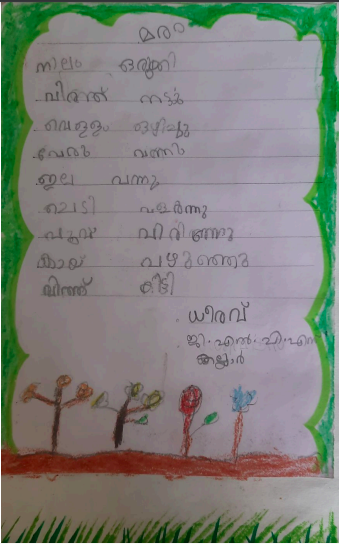 മരം
നിലം ഒരുക്കി
വിത്ത് നട്ടു
വെള്ളം ഒഴിച്ചു
വേരു വന്നു
ഇല വന്നു
ചെടി വളർന്നു
പൂവ് വിരിഞ്ഞു
കായ് പഴുഞ്ഞു
വിത്ത് കിട്ടി
ധീരവ്
ജി.എൽ.പി.എസ്